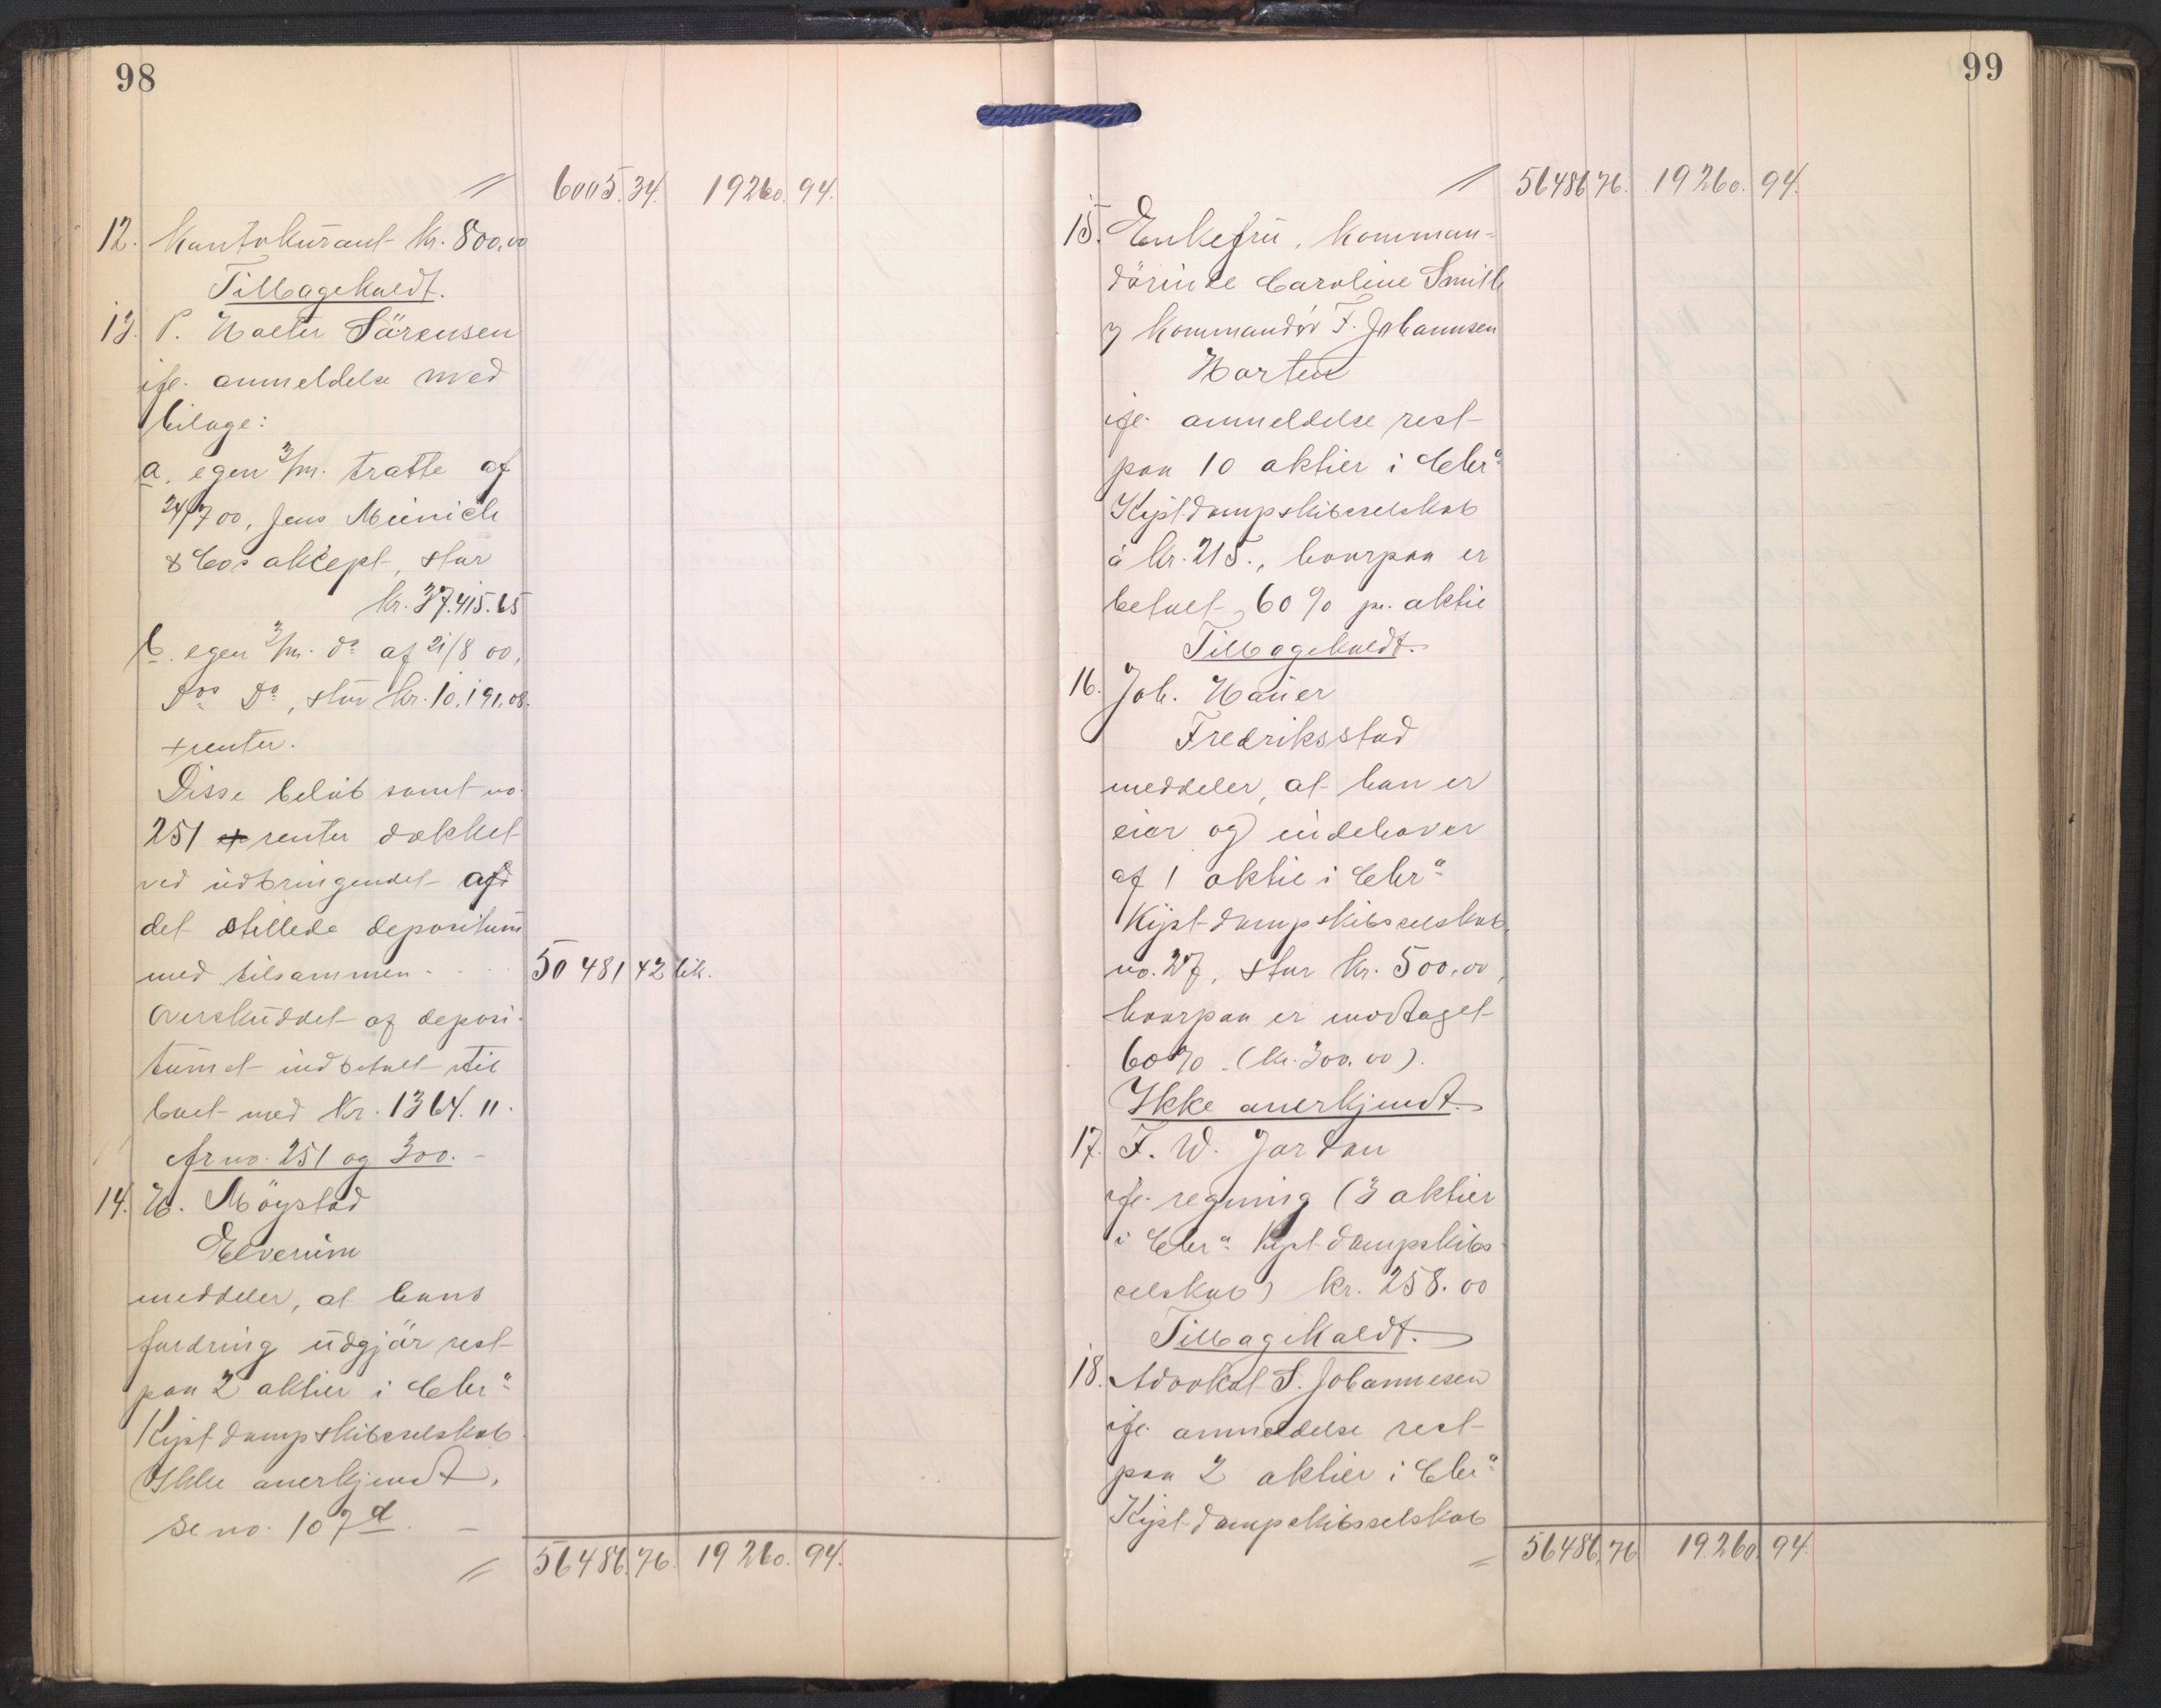 98
〃 6005.34. 19260.94.
12. Kontokurant kr. 800,00
Tilbagekaldt.
13. P. Holter Sörensen
ifl. anmeldelse med
bilage:
a. egen 3/m. tratte af
24/7 00, Jens Münich
& Cos akcept, stor
kr. 37.415.65
b. egen 3/m. do af 21/8 00,
dos do, stor kr. 10.191,08.
+ renter.
Disse beløb samt no.
251 + renter dækket
ved udbringendet af
det stillede depositum
med tilsammen . . . 50 481 42 lik.
Overskuddet af deposi-
tumet indbetalt til
boet med kr. 1364.11.
Cfr no. 251 og 300. –
14. H. Möystad
Elverum
meddeler, at hans
fordring udgjör rest
paa 2 aktier i Chra
Kystdampskibsselskab
Ikke anerkjendt,
se no. 107 d. –
〃 56486.76. 19260.94.
99
〃 56486 76. 19260. 94.
15. Enkefru, Komman-
dörinde Caroline Smith
v/ Kommandör F. Johannsen
Horten
ifl. anmeldelse rest
paa 10 aktier i Chra
Kystdampskibsselskab
à kr. 215., hvorpaa er
betalt 60% pr. aktie
Tilbagekaldt.
16. Joh. Hauer
Fredriksstad
meddeler, at han er
eier og indehaver
af 1 aktie i Chra
Kystdampskibsselskab,
no. 27, stor kr. 500.00,
hvorpaa er modtaget
60% (kr. 300.00).
Ikke anerkjendt.
17. F. W. Jordan
ifl. regning (3 aktier
i Chra Kystdampskibs
selskab) kr. 258.00
Tilbagekaldt.
18. Advokat S. Johannesen
ifl. anmeldelse rest
paa 2 aktier i Chra
Kystdampskibsselskab
〃 56486,76 19.260.94.